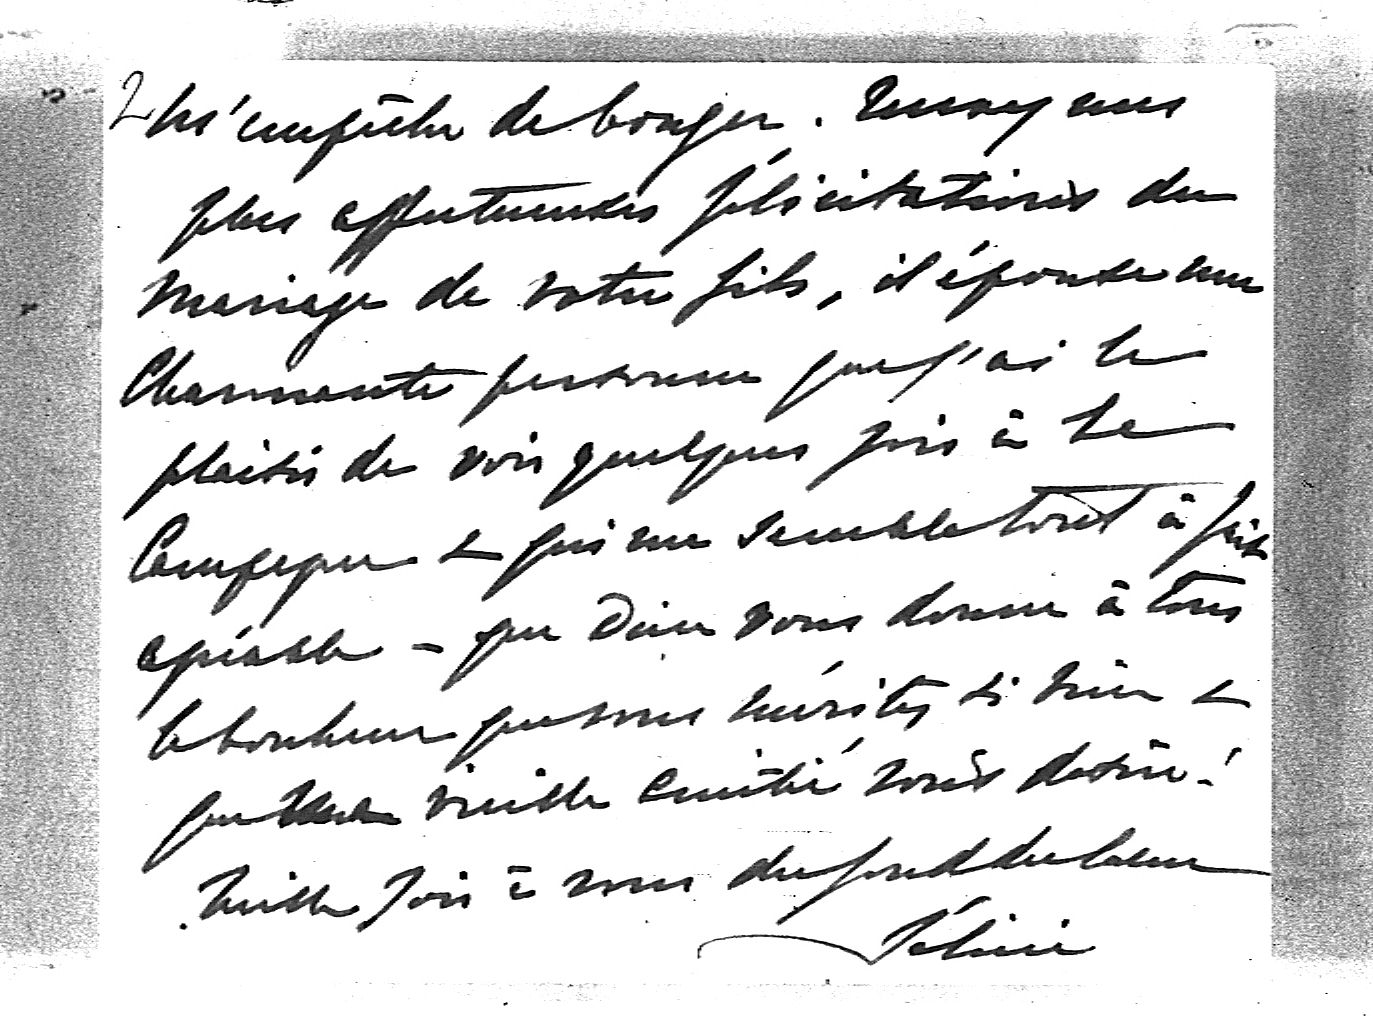 2
m'empêche de bouger. Recevez mes
plus affectueuses félicitations du
mariage de votre fils, il épouse une
Charmante personne que j'ai le
plaisir de voir quelques fois à
& qui me semble tout à fait
agréable - que Dieu vous donne à tous
le bonheur que vous méritez si bien &
que vieille amitié vous désire!
Mille fois à vous du fond du Coeur
Félicie